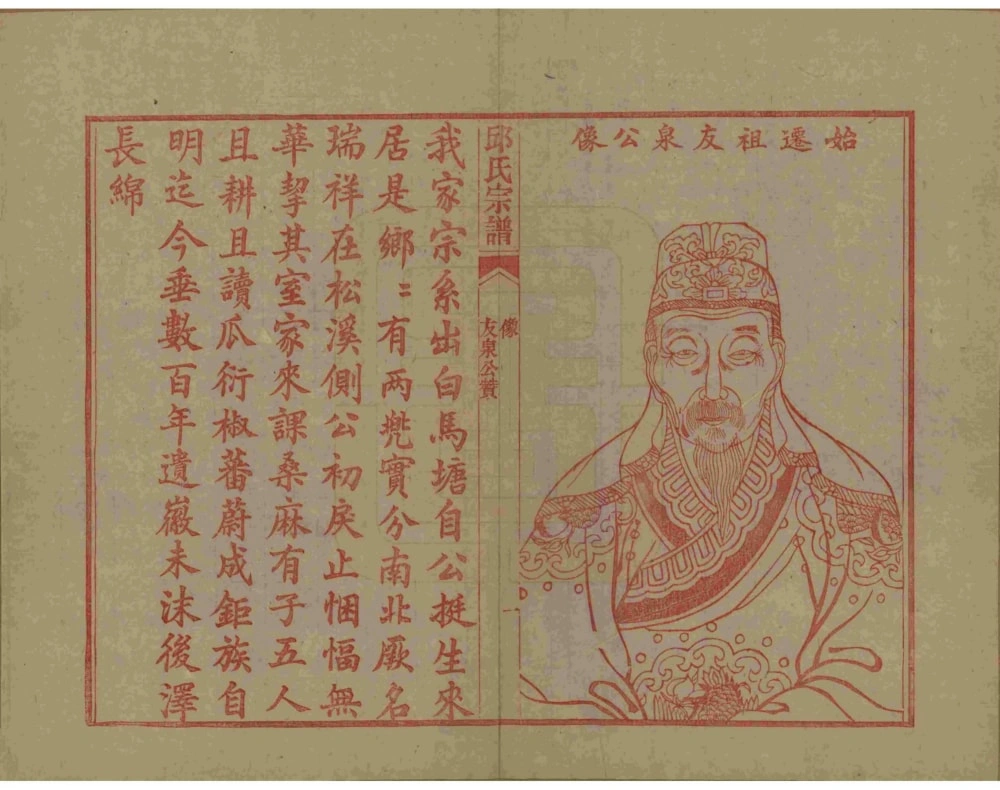 始遷祖友泉公像
邱氏宗譜
像
友泉公贊
一
我家宗系出白馬塘自公挺生來
居是鄉〻有两兠實分南北厥名
瑞祥在松溪側公初戾止悃愊無
華挈其室家來課桑麻有子五人
且耕且讀瓜衍椒蕃蔚成鉅族自
明迄今垂數百年遺徽未沬後澤
長綿